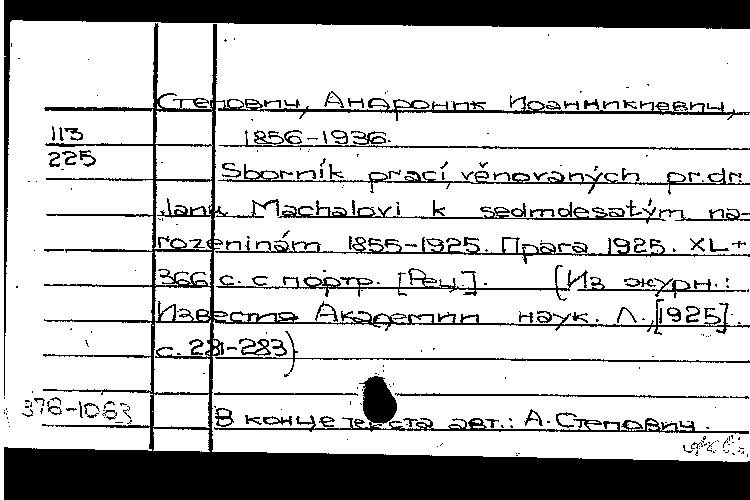 Степович, Андроник Иоанникиевич,
113
1856-1936.
225
Sborník prací, věnovaných pr. dr.
Janu Machalovi k sedmdesatým na-
rozeninám 1855-1925. Прага 1925. XL+
366 с. с портр. [Рец.]. (Из журн.:
Известия Академии наук. Л., [1925].
с. 281-283)
376-1083
В конце текста авт.: А. Степович.